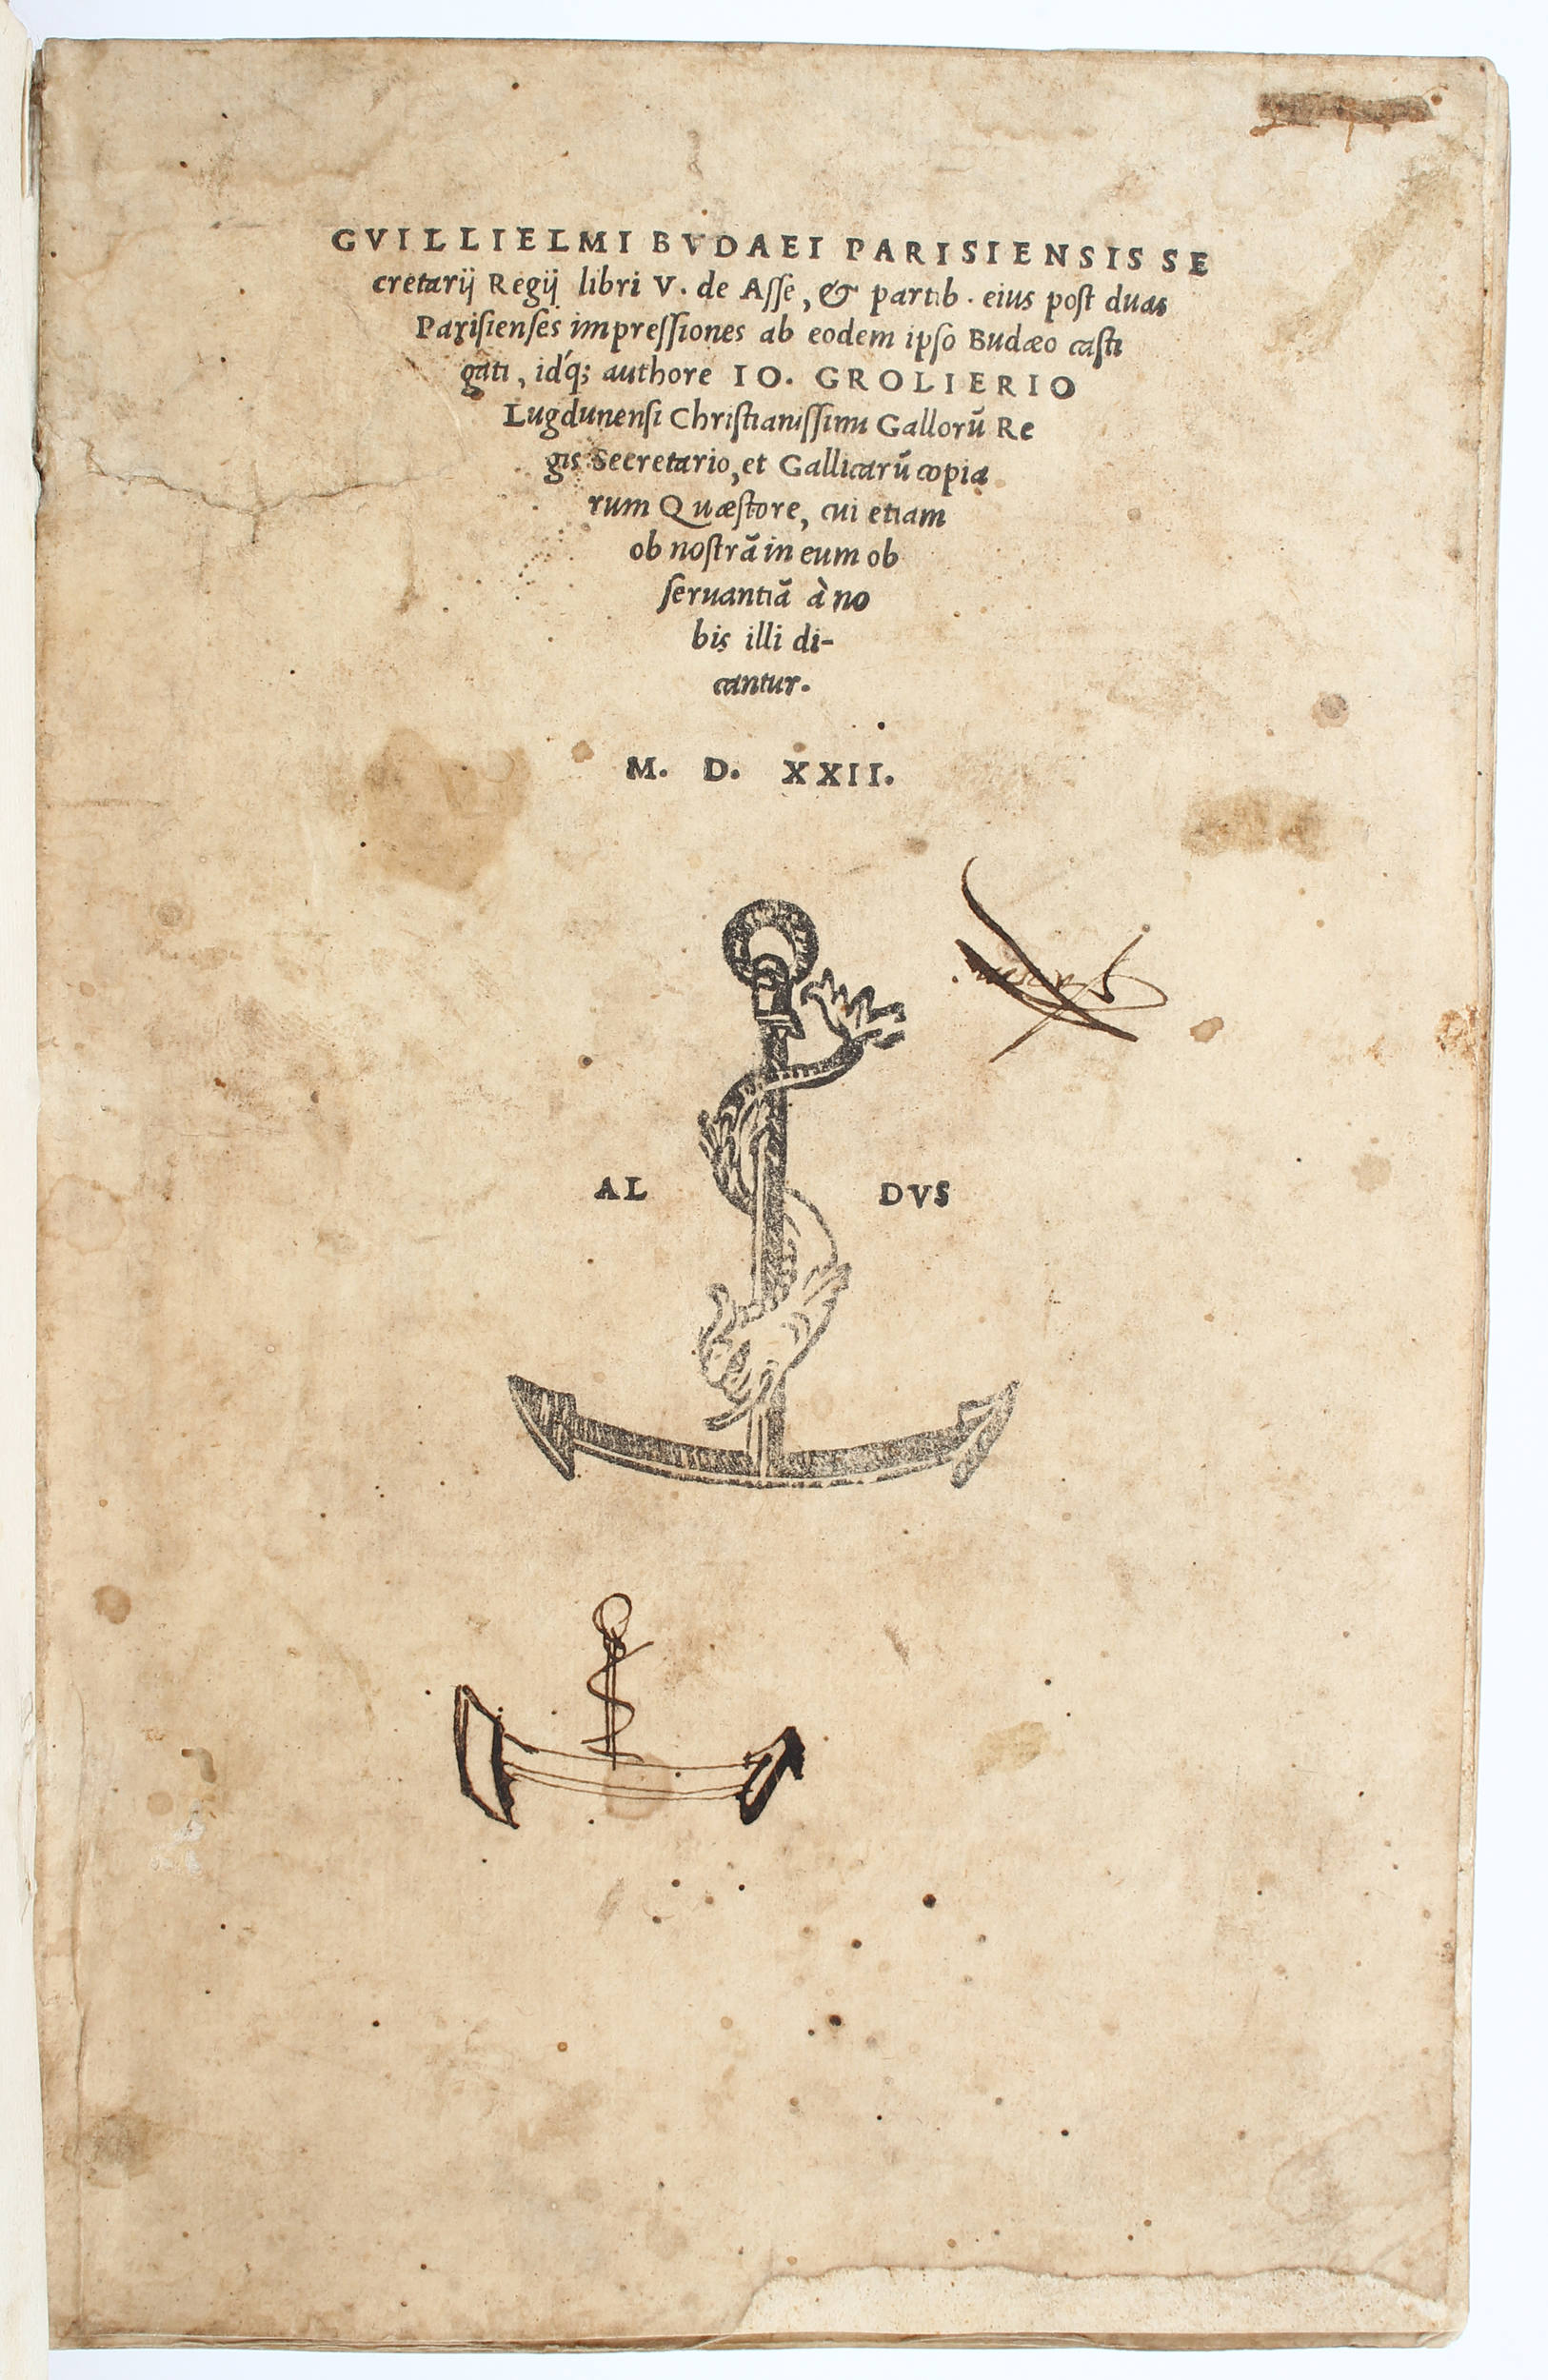 GVILLIELMI BVDAEI PARISIENSIS SE
cretarij Regij libri V. de Asse, & partib. eius post duas
Parisienses impressiones ab eodem ipso Budæo casti
gati, idq́; authore IO. GROLIERIO
Lugdunensi Christianissimi Gallorũ Re
gis Secretario, et Gallicarũ copia
rum Quæstore, cui etiam
ob nostrã in eum ob
seruantiã à no
bis illi di-
cantur.
M. D. XXII.
AL DVS